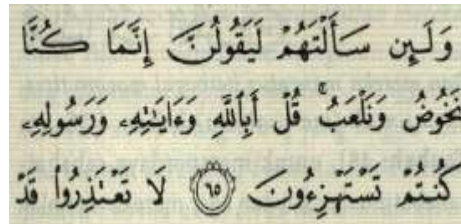 وَلَئِن سَأَلْتَهُمْ لَيَقُولُنَّ إِنَّمَا كُنَّا
نَخُوضُ وَنَلْعَبُ ۚ قُلْ أَبِٱللَّهِ وَءَايَٰتِهِۦ وَرَسُولِهِۦ
كُنتُمْ تَسْتَهْزِءُونَ ٦٥ لَا تَعْتَذِرُوا۟ قَدْ